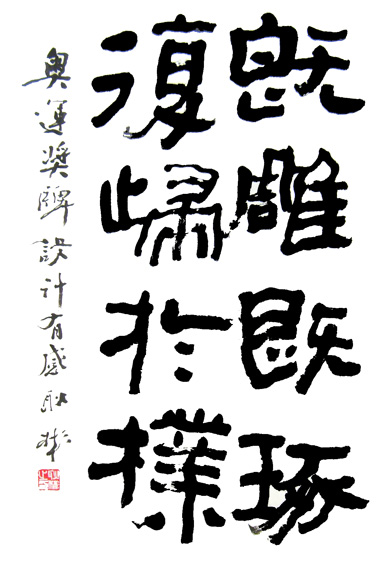 既雕既琢
復歸於樸
奧運奬牌設计有感耿彬